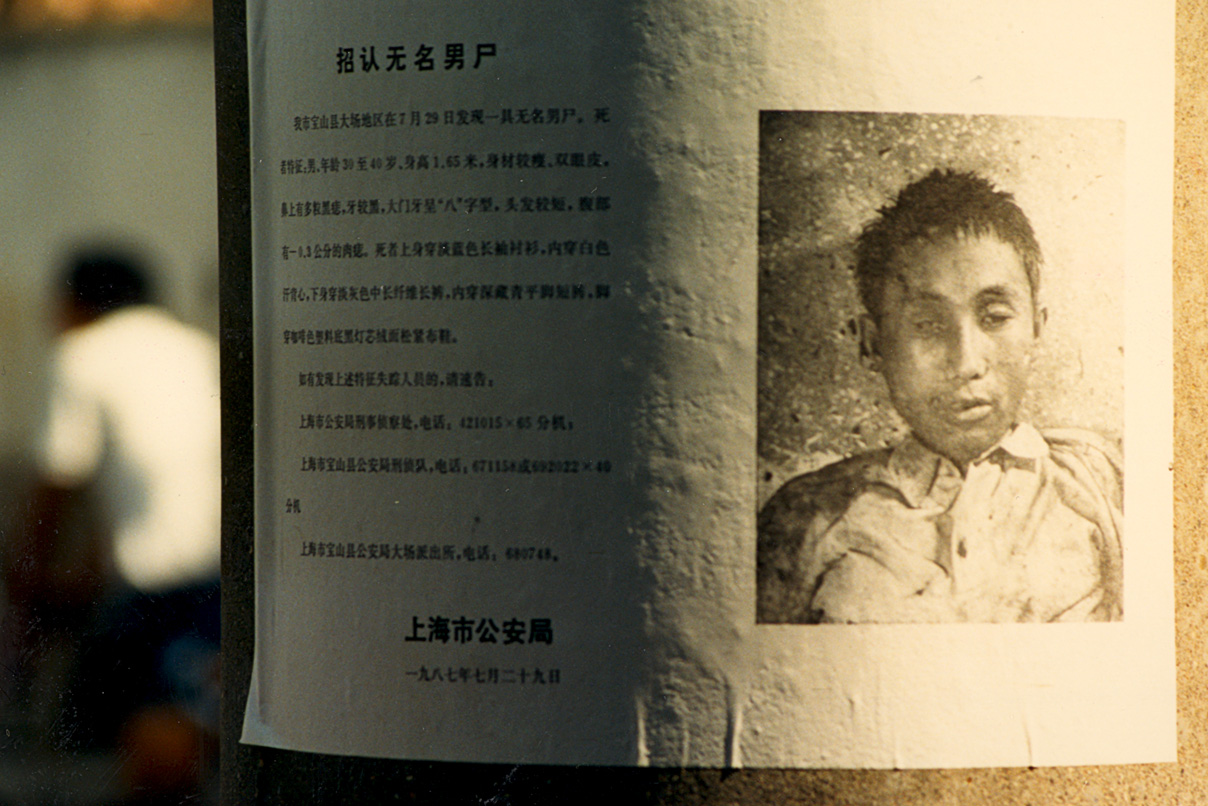 招认无名男尸
我市宝山县大场地区在7月29日发现一具无名男尸。死
者特征：男、年龄30至40岁、身高1.65米，身材较瘦、双眼皮，
鼻上有多粒黑痣，牙较黑，大门牙呈“八”字型，头发较短，腹部
有一0.3公分的肉痣。死者上身穿淡蓝色长袖衬衫，内穿白色
汗背心，下身穿淡灰色中长纤维长裤，内穿深藏青平脚短裤，脚
穿咖啡色塑料底黑灯芯绒面松紧布鞋。
如有发现上述特征失踪人员的，请速告：
上海市公安局刑事侦察处，电话：421015×65分机；
上海市宝山县公安局刑侦队，电话：671158或692022×40
分机
上海市宝山县公安局大场派出所，电话：680748。
上海市公安局
一九八七年七月二十九日